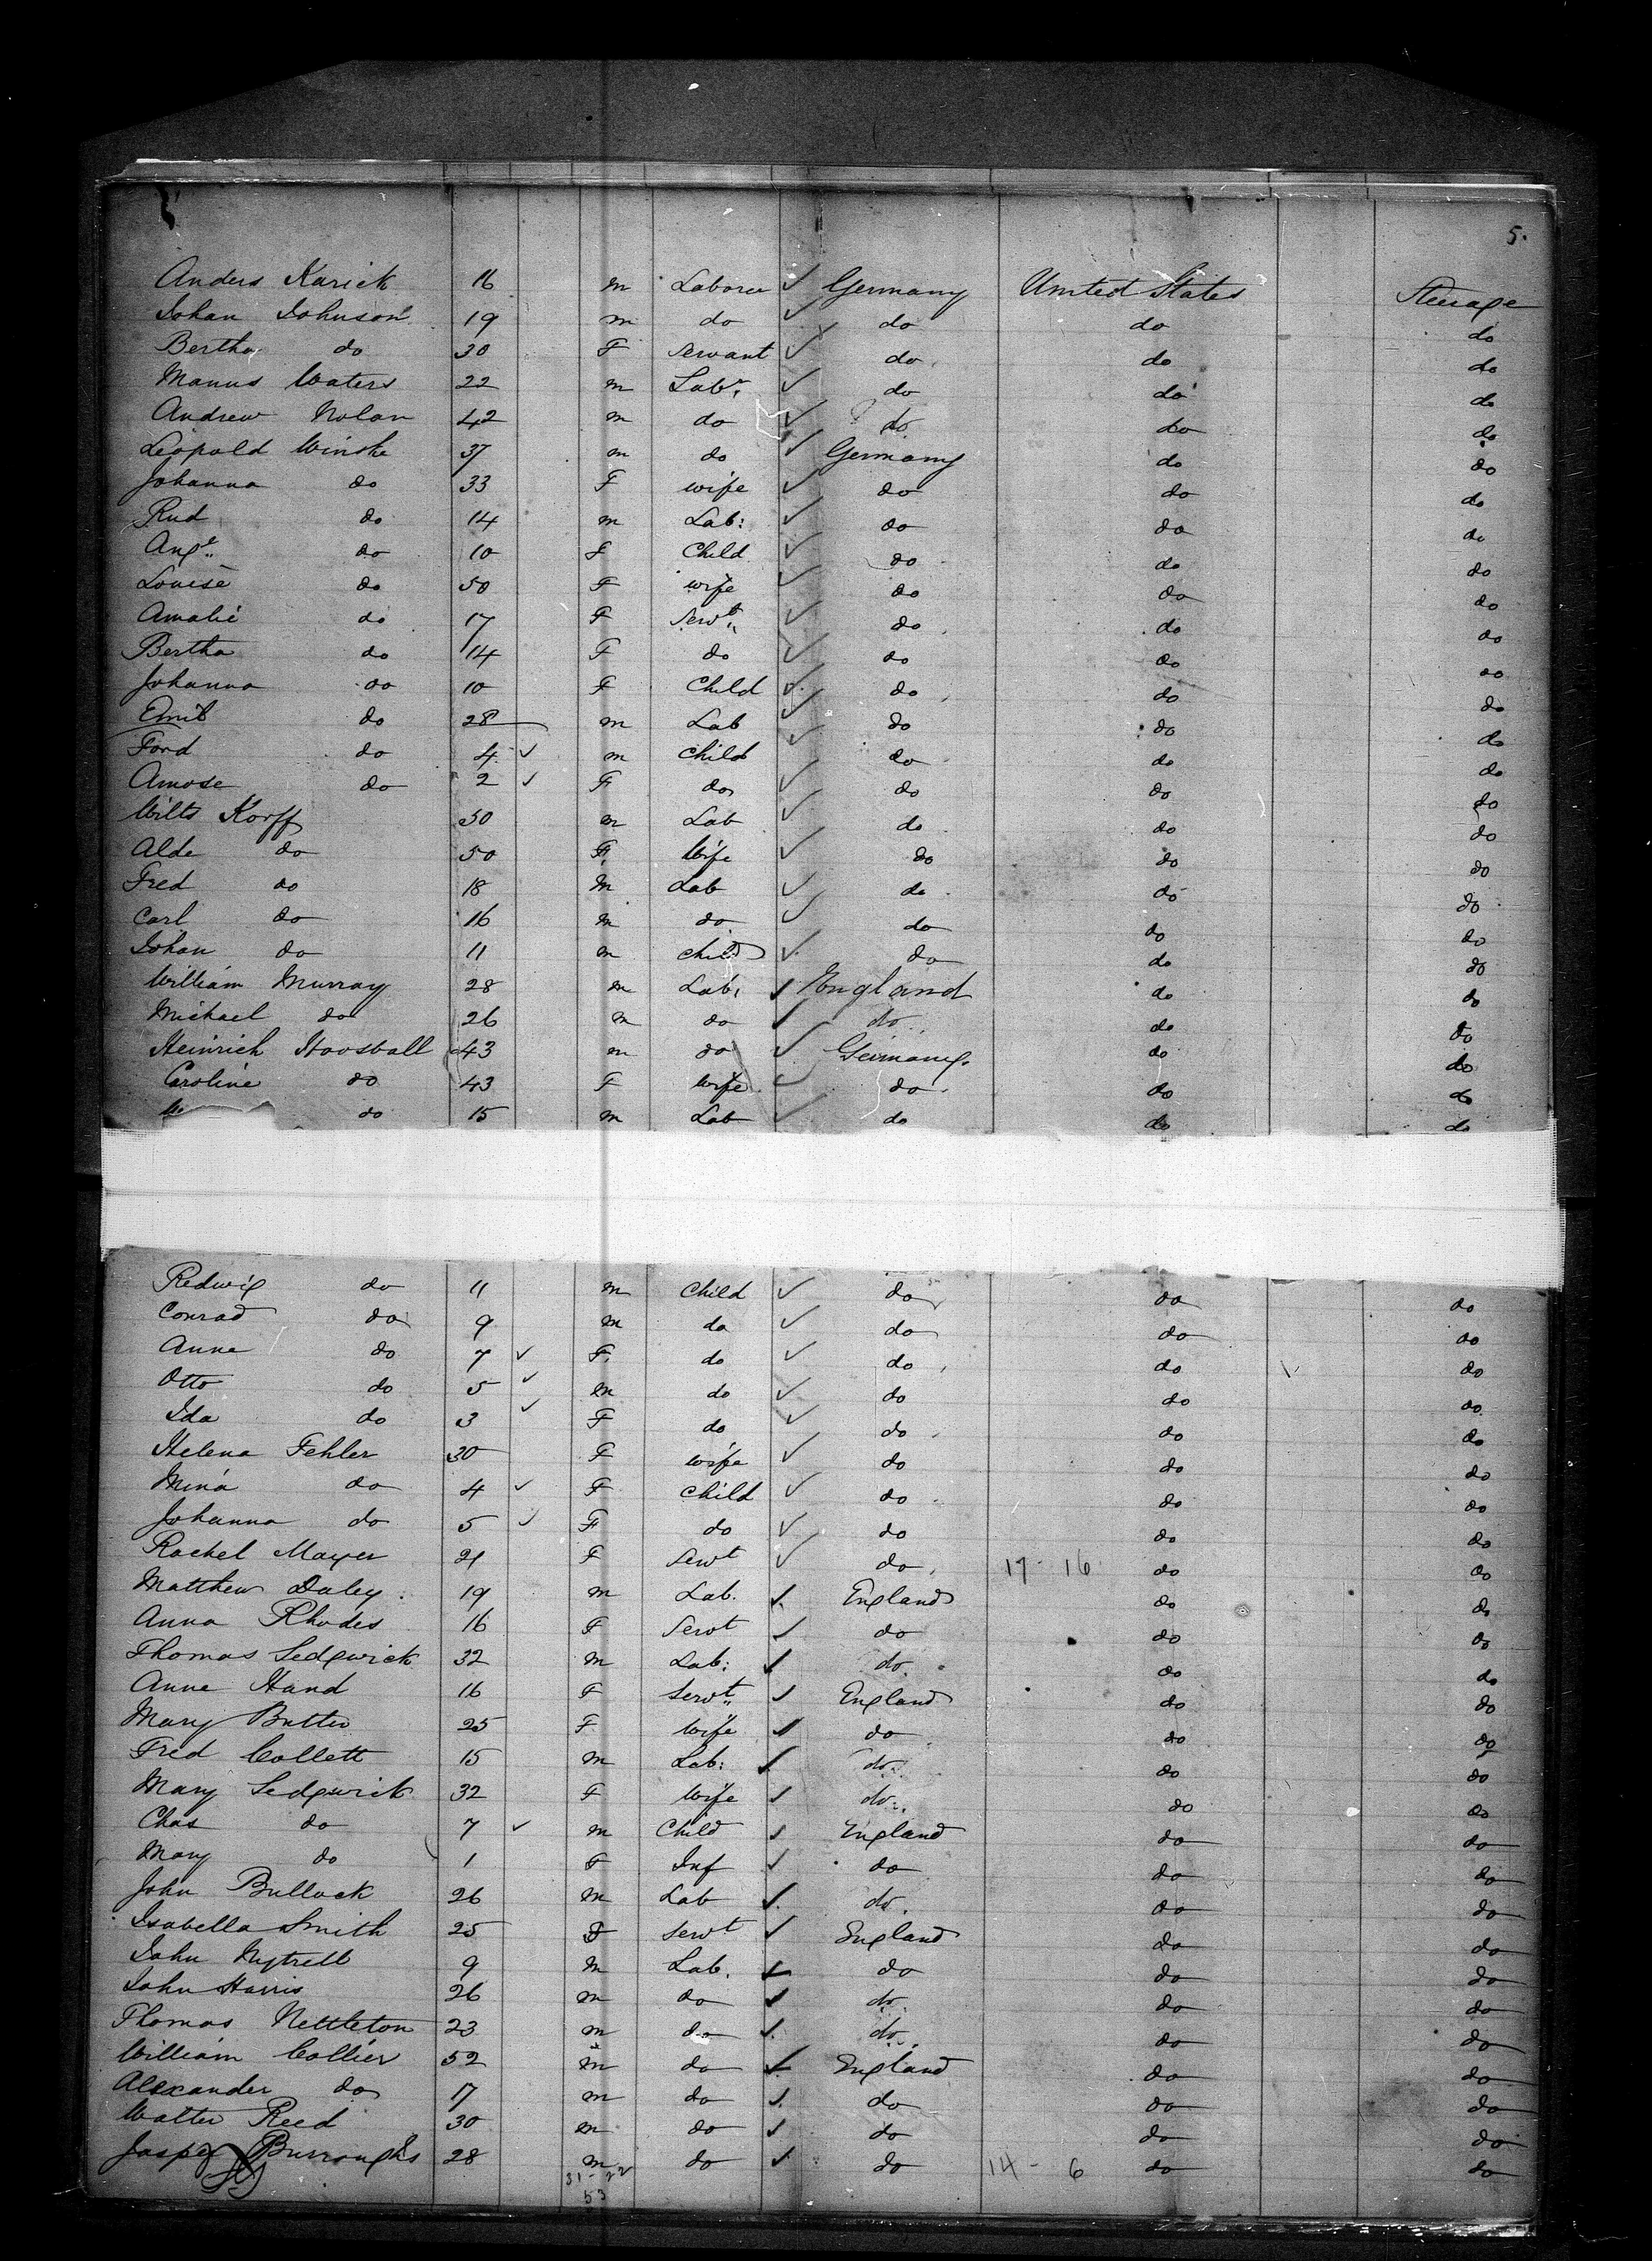 5.
Anders Karick 16 m Laborer ✓ Germany United States Steerage
Johan Johnson 19 m do ✓ do do do
Bertha do 30 F Servant ✓ do do do
Manus Waters 22 m Labr. ✓ do do do
Andrew Nolan 42 m do ✓ do do do
Leopold Winske 37 m do ✓ Germany do do
Johanna do 33 F wife ✓ do do do
Rud do 14 m Lab: ✓ do do do
Auge. do 10 F Child ✓ do do do
Louise do 50 F wife ✓ do do do
Amalie do 17 F Servt. ✓ do do do
Bertha do 14 F do ✓ do do do
Johanna do 10 F Child ✓ do do do
Emil do 28 m Lab ✓ do do do
Ford do 4 ✓ m Child ✓ do do do
Amose do 2 ✓ F do ✓ do do do
Wilts Korff 50 m Lab ✓ do do do
Alde do 50 F. Wife ✓ do do do
Fred do 18 M Lab ✓ do do do
Carl do 16 m do ✓ do do do
Johan do 11 m child ✓ do do do
William Murray 28 m Lab. ✓ England do do
Michael do 26 m do ✓ do do do
Heinrich 43 m do ✓ Germany. do do
Caroline do 43 F wife ✓ do do do
do 15 m Lab ✓ do do do
Redwig do 11 m Child ✓ do do do
Conrad do 9 m do ✓ do do do
Anne do 7 ✓ F. do ✓ do do do
Otto do 5 ✓ m do ✓ do do do
Ida do 3 ✓ F do ✓ do do do
Helena Fehler 30 F wife ✓ do do do
Mina do 4 ✓ F Child ✓ do do do
Johanna do 5 ✓ F do ✓ do do do
Rachel Mayer 21 F Servt ✓ do 17 - 16 do do
Matthew Daley 19 m Lab. ✓ England do do
Anna Rhodes 16 F Servt ✓ do do do
Thomas Sedgwick 32 m Lab: ✓ do do do
Anne Hand 16 F Servt ✓ England do do
Mary Butter 25 F Wife ✓ do do do
Fred Collett 15 m Lab: ✓ do do do
Mary Sedgwick 32 F Wife ✓ do do do
Chas do 7 ✓ m Child ✓ England do do
Mary do 1 F Inf ✓ do do do
John Bullock 26 m Lab ✓ do do do
Isabella Smith 25 F Servt ✓ England do do
John 9 m Lab. ✓ do do do
John Harris 26 m do ✓ do do do
Thomas Nettleton 23 m do ✓ do do do
William Collier 52 m do ✓ England do do
Alexander do 17 m do ✓ do do do
Walter Reed 30 m do ✓ do do do
Jasper Burroughs 28 m do ✓ do 14 - 6 do do
31 - 22
53